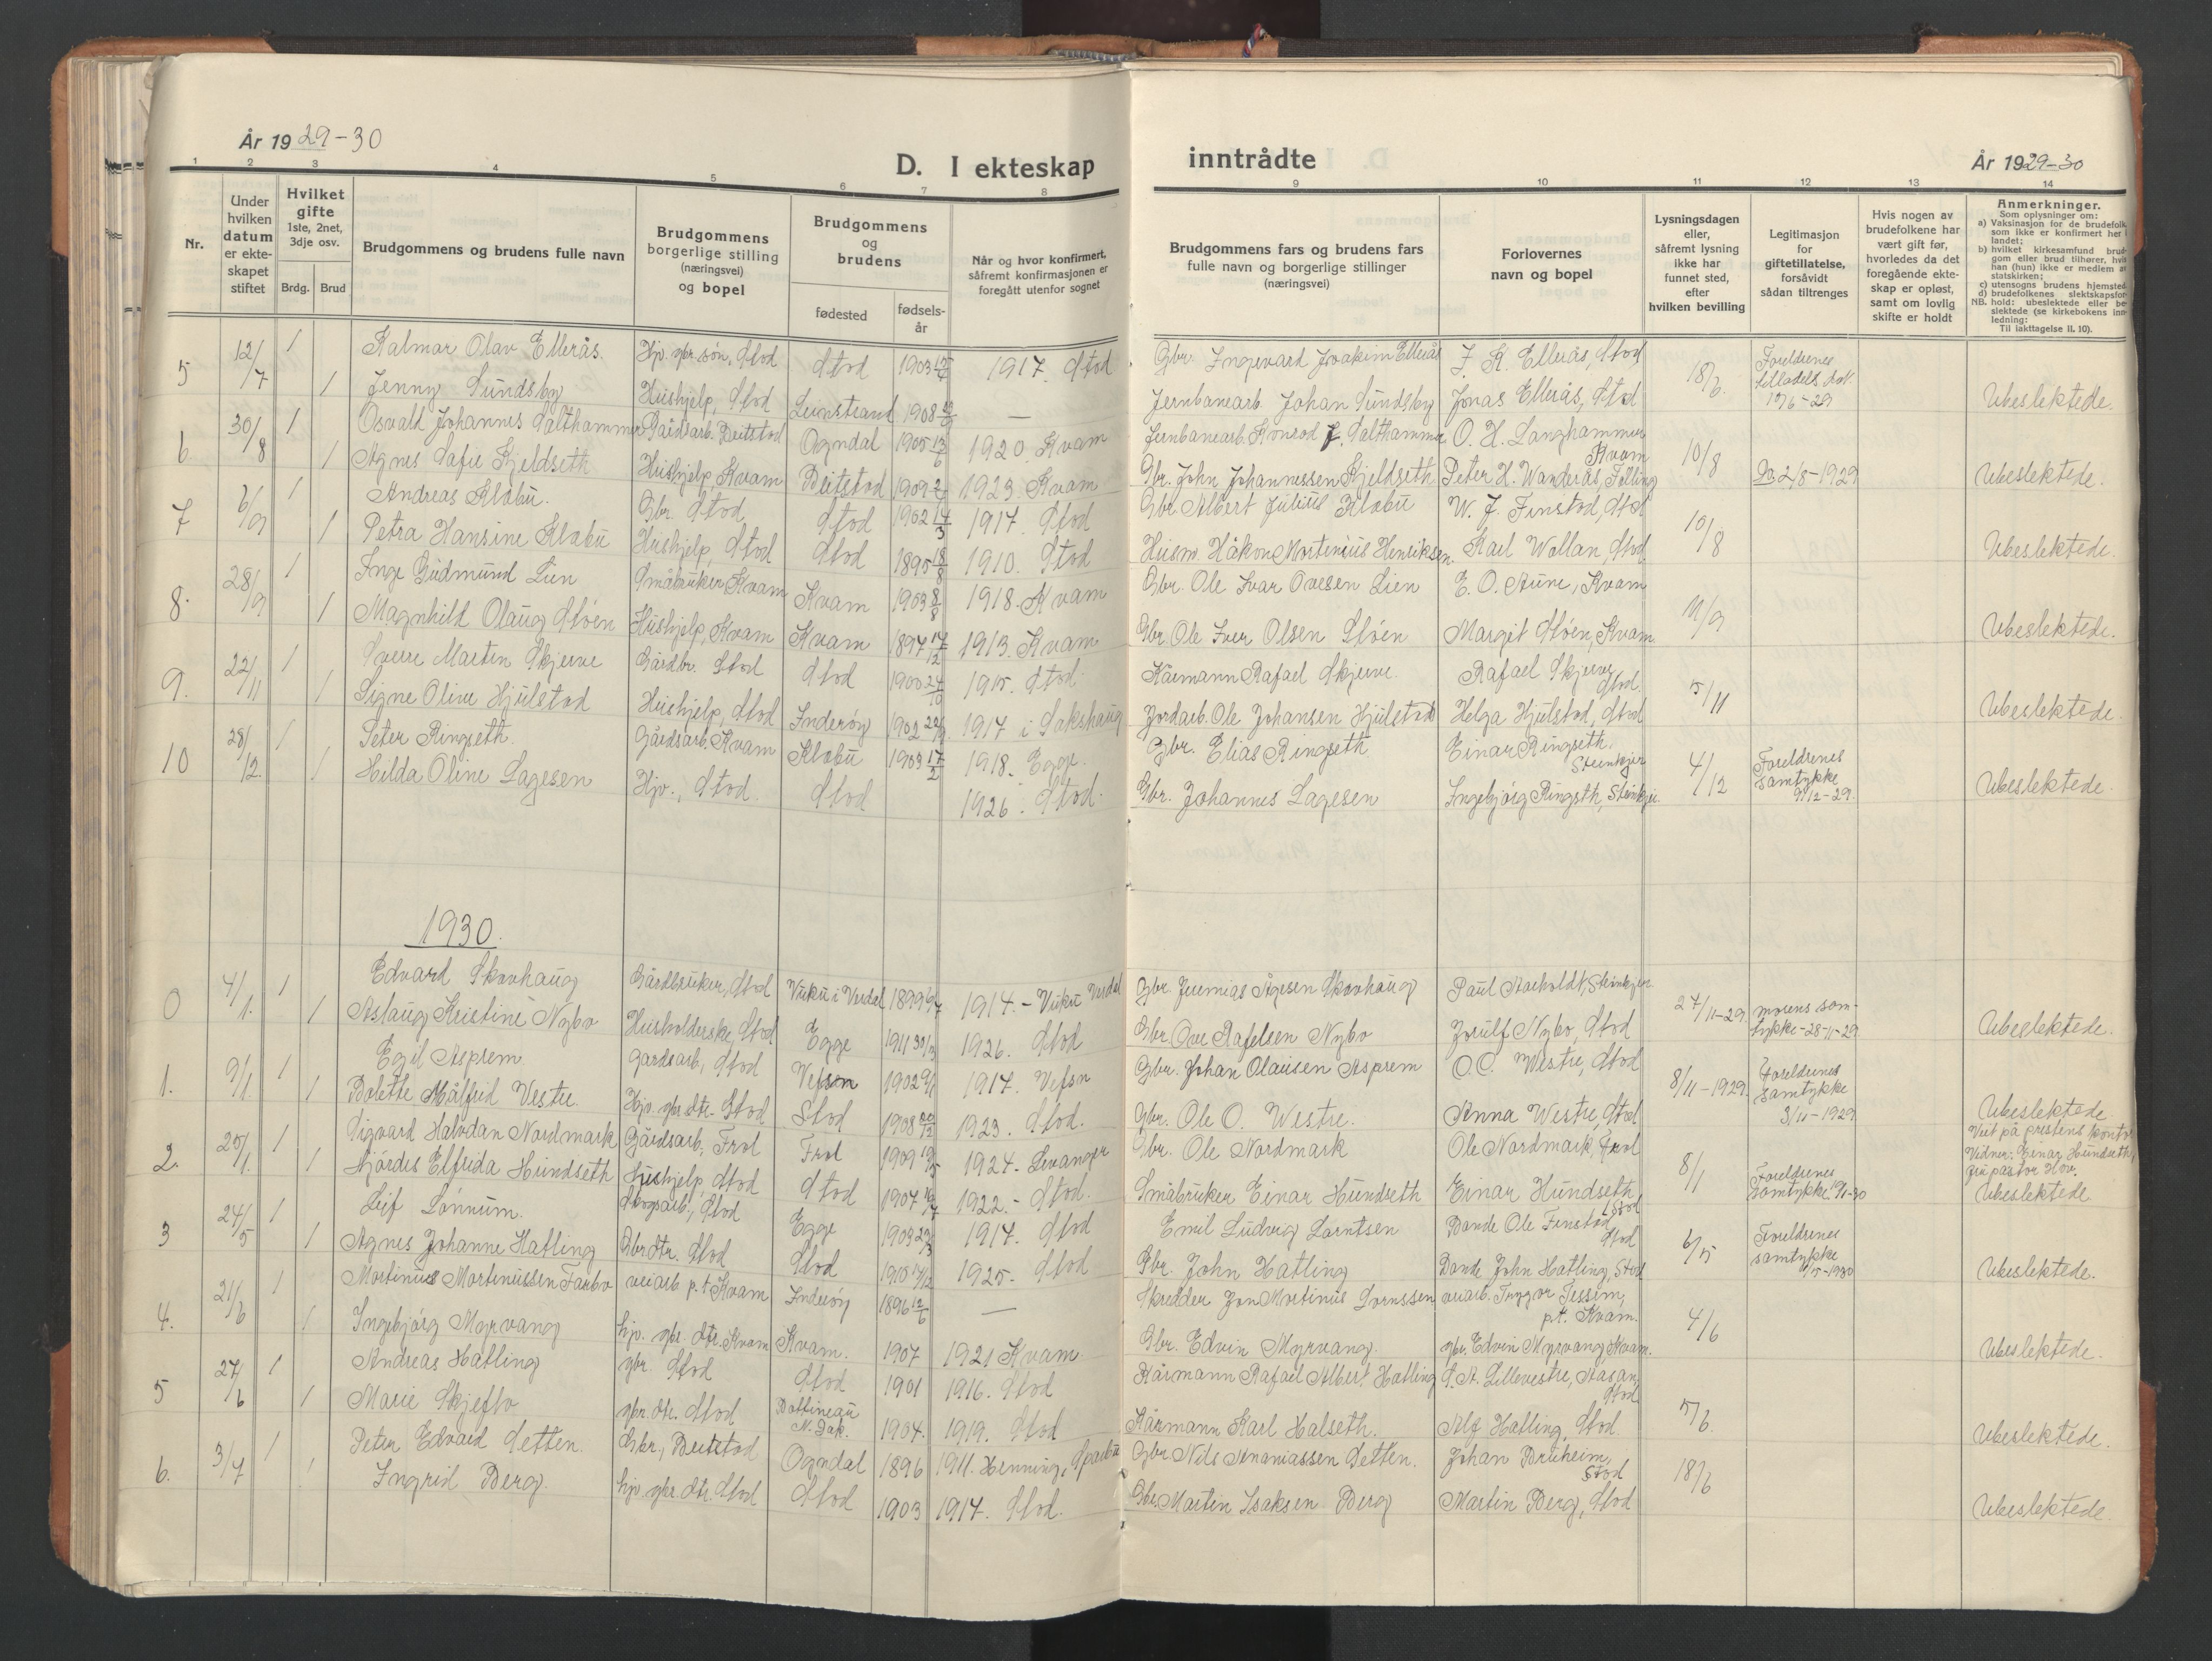 År 1929-30
D. I ekteskap
1 2 3 4 5 6 7 8
Nr.
Under hvilken datum er ekteskapet stiftet
Hvilket gifte 1ste, 2net, 3dje osv.
Brdg. Brud
Brudgommens og brudens fulle navn
Brudgommens borgerlige stilling (næringsvei) og bopel
Brudgommens og brudens
fødested
fødselsår
Når og hvor konfirmert, såfremt konfirmasjonen er foregått utenfor sognet
5 12/7 1 Kalmar Olav Ellerås. Hjv. gbr. søn, Stod Stod 1903 1917. Stod
1 Jenny Sundsby Hushjelp, Stod Leinstrand 1908 —
6. 30/8 1 Osvald Johannes Salthammer Gårdsarb. Beitstod Ogndal 1905 13/6 1920. Kvam
1 Agnes Kjeldseth Hushjelp, Kvam Beitstod 1909 1923. Kvam
7 6/9 1 Andreas Klæbu. Gbr. Stod Stod 1902 14/3 1917. Stod
1 Petra Hansine Klæbu Hushjelp, Stod Stod 1895 18/8 1910. Stod
8. 28/9 1 Inge Gudmund Lien Småbruker Kvam Kvam 1903 8/8 1918. Kvam
1 Magnhild Olaug Støen Hushjelp, Kvam Kvam 1897 17/12 1913. Kvam
9. 22/11 1 Sverre Martin Skjerve Gårdbr. Stod Stod 1900 24/10 1915. Stod
1 Signe Oline Hjulstad Hushjelp, Stod Inderøy 1902 1917 i Sakshaug
10 28/12 1 Peter Ringseth. Gårdsarb. Kvam Klæbu 1903 17/2 1918. Egge.
1 Hilda Oline Lagesen Hjv., Stod. Stod 1926. Stod.
1930.
0 4/1. 1 Edvard Skovhaug Gårdbruker, Stod Vuku i Verdal 1899 1914. - Vuku Verdal
1 Aslaug Kristine Nybo Husholderske, Stod Egge 1911 1926. Stod
1. 9/1. 1 Egil Asprem. Gardsarb., Stod Vefsn 1902 1917. Vefsn
1 Bolette Målfrid Vestre. Hjv. gbr. dtr. Stod Stod 1908 20/12 1923. Stod.
2. 25/1. 1 Sigvard Halvdan Nordmark Gårdsarb., Frol Frol 1909 19/5 1924. Levanger
1 Hjørdis Elfrida Hundseth Hushjelp, Stod Stod 1907 1922. - Stod.
3 24/5 1 Leif Lønnum. Skogsarb., Stod Egge 1903 29/3 1917. Stod
1 Agnes Johanne Hatling Gbr. dtr. Stod Stod 1910 17/12 1925. Stod
4. 21/6 1 Martinus Martinussen Faxbo veiarb p.t. Kvam Inderøy 1896 12/6 —
1 Ingebjørg Myrvang hjv. gbr. dtr. Kvam Kvam. 1907 1921 Kvam
5 27/6 1 Andreas Hatling gbr. Stod Stod 1901 1916. Stod
1 Marie Skjefto gbr. dtr. Stod Bottineau N. Dak. 1904. 1919. Stod
6. 3/7 1 Peter Edvard Setten. Gbr., Beitstod Ogndal 1896 1911. Henning, Sparbu
1 Ingrid Berg. hjv. gbr. dtr. Stod Stod 1903 1917. Stod.
inntrådte
År 1929-30
9 10 11 12 13 14
Brudgommens fars og brudens fars fulle navn og borgerlige stillinger (næringsvei)
Forlovernes navn og bopel
Lysningsdagen eller, såfremt lysning ikke har funnet sted, efter hvilken bevilling
Legitimasjon for giftetillatelse, forsåvidt sådan tiltrenges
Hvis nogen av brudefolkene har vært gift før, hvorledes da det foregående ekteskap er opløst, samt om lovlig skifte er holdt
Anmerkninger.
Som oplysninger om:
a) Vaksinasjon for de brudefolk som ikke er konfirmert her i landet;
b) hvilket kirkesamfund brudgom eller brud tilhører, hvis han (hun) ikke er medlem av statskirken;
c) utensogns brudens hjemsted
d) brudefolkenes slektskapsforhold: ubeslektede eller beslektede (se kirkebokens innledning:
NB.
Til iakttagelse II. 10).
Gbr. Ingevard Joakim Ellerås J. K. Ellerås, Stod 18/6 Foreldrenes tilladels dat. 17/6-29
Jernbanearb. Johan Sundsby Jonas Ellerås, Stod Ubeslektede.
Jernbanearb. Konrad J. Salthammer O. H. Langhammer Kvam 10/8 2/8-1929
Gbr. John Johannessen Kjeldseth Peter H. Wanderås, Følling Ubeslektede.
Gbr. Albert Julius Klæbu W. J. Finstad, Stod 10/8
Husm. Håkon Mortenius Henriksen. Karl Wollan, Stod Ubeslektede.
Gbr. Ole Ivar Ovesen Lien E. O. Aune, Kvam 11/9
Gbr. Ole Iver Olsen Støen Margit Støen, Kvam. Ubeslektede.
Kårmann Rafael Skjerve. Rafael Skjerve Stod. 5/11
Jordarb. Ole Johansen Hjulstad Helga Hjulstad, Stod Ubeslektede.
Gbr. Elias Ringseth Einar Ringseth. Steinkjer 4/12 Foreldrenes samtykke 9/12-29.
Gbr. Johannes Lagesen Ingebjørg Ringseth, Steinkjer. Ubeslektede.
Gbr. Jeremias Ågesen Skovhaug Paul Aarholdt, Steinkjer 27/11-29. morens samtykke-28-11-29.
Gbr. Ove Rafelsen Nybo Jorulf Nybo, Stod Ubeslektede.
Gbr. Johan Olausen Asprem O. C. Westre, Stod 8/11-1929. Foreldrenes samtykke 3/11-1929
Gbr. Ole O. Westre. Anna Westre, Stod Ubeslektede
Gbr. Ole Nordmark Ole Nordmark, Frol 8/1 Foreldrenes samtykke Viet på prestens kontor Vidner: Einar Hundseth,
Småbruker Einar Hundseth Einar Hundseth, Stod Ubeslektede
Emil Ludvig Larntsen Bonde Ole Finstad Stod 6/5 Foreldrenes samtykke
Gbr. John Hatling Bonde John Hatling, Stod Ubeslektede.
Skredder Jon Martinus Lornssen veiarb. Tryggve Tessem, p.t. Kvam. 4/6
Gbr. Edvin Myrvang. gbr. Edvin Myrvang, Kvam. Ubeslektede.
Kårmann Rafael Albert Hatling S. A. Lillevestre, Aasan, Stod 5/6
Kårmann Karl Halseth. Alf Hatling, Stod. Ubeslektede.
Gbr. Nils Ananiassen Setten. Johan Bruheim, Stod 18/6
Gbr. Martin Isaksen Berg Martin Berg, Stod Ubeslektede.